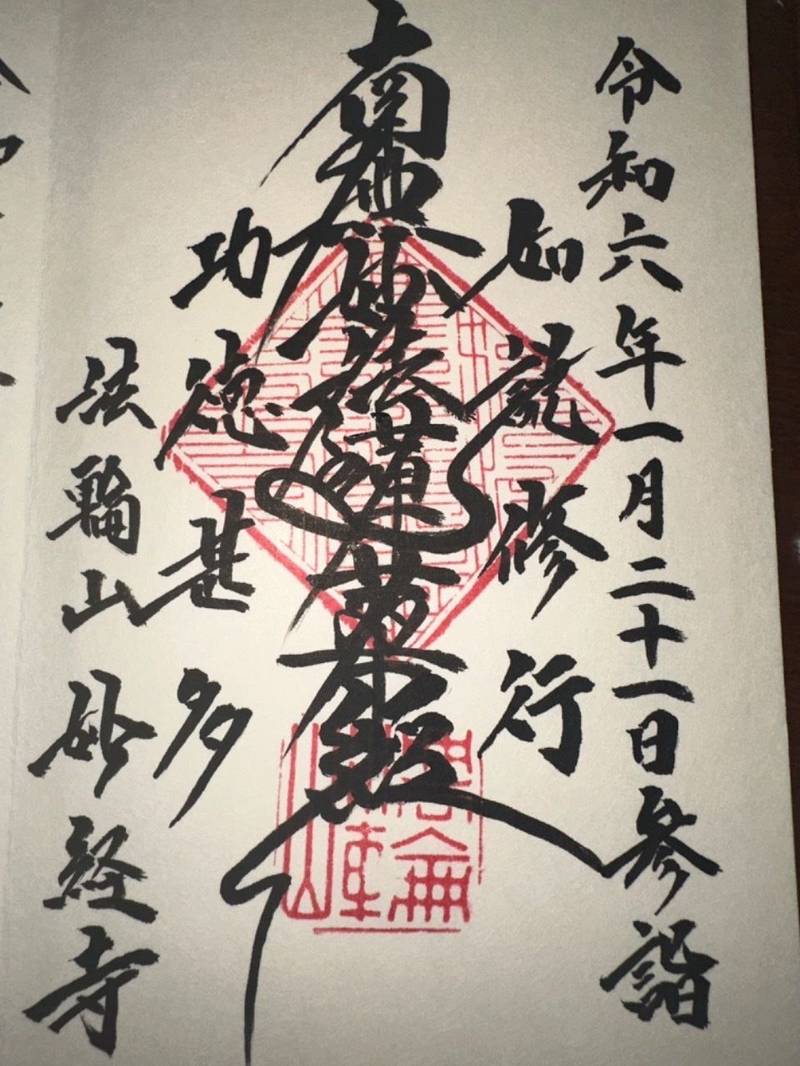 令和六年一月二十一日参詣
如説修行
南無妙法蓮華経
功徳甚多
法輪山妙経寺